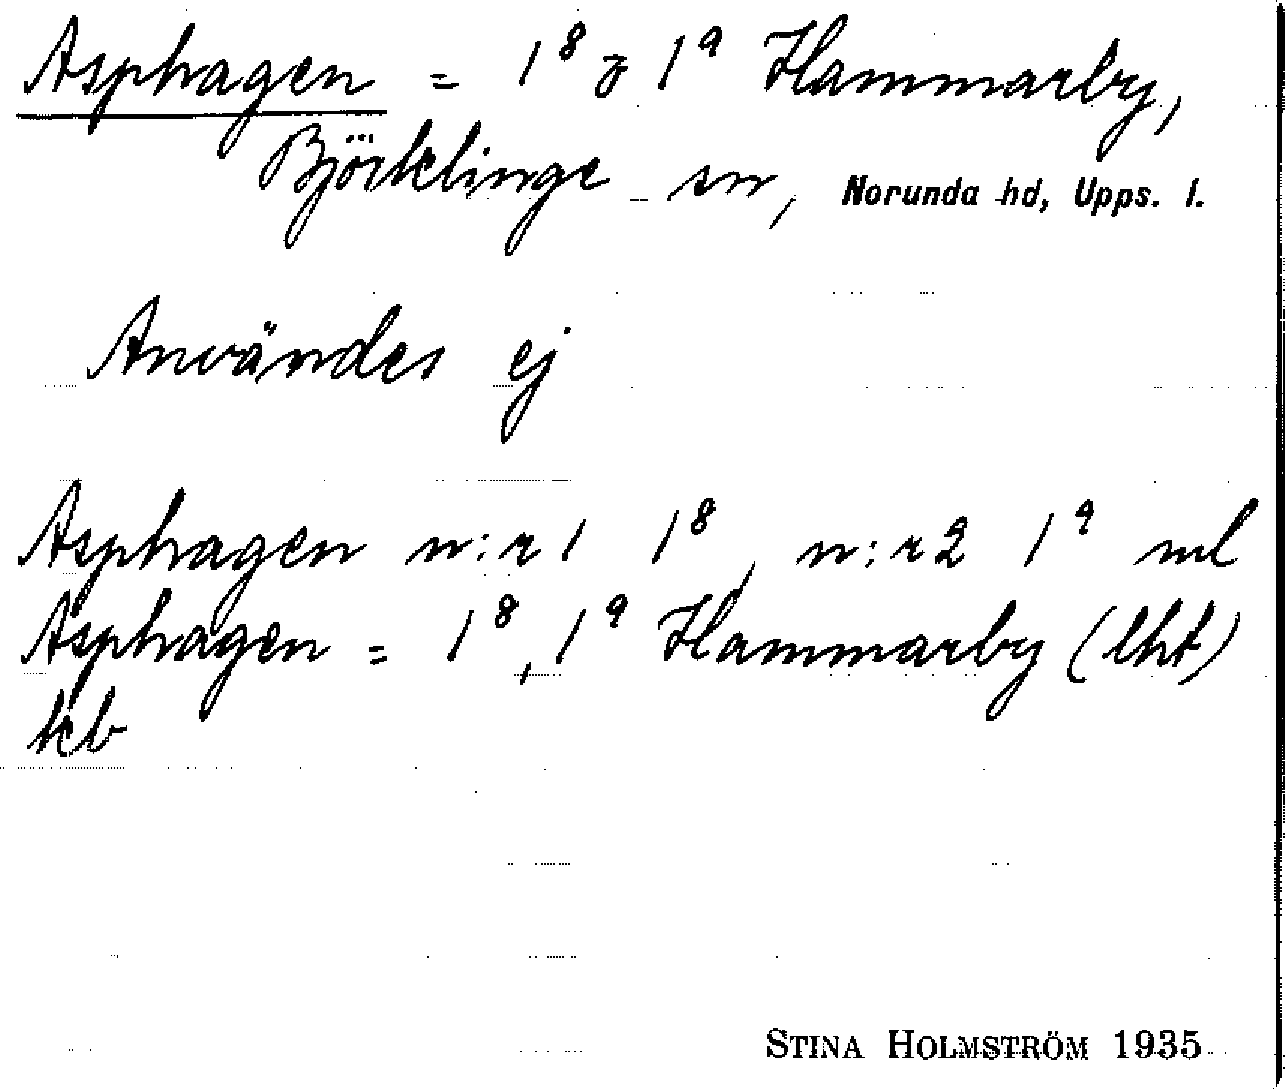 Asphagen = 1⁸ o 1⁹ Hammarby,
Björklinge sn, Norunda hd, Upps. l.
Användes ej
Asphagen n:r 1 1⁸, n:r 2 1⁹ ml
Asphagen = 1⁸, 1⁹ Hammarby (lht)
kb
STINA HOLMSTRÖM 1935